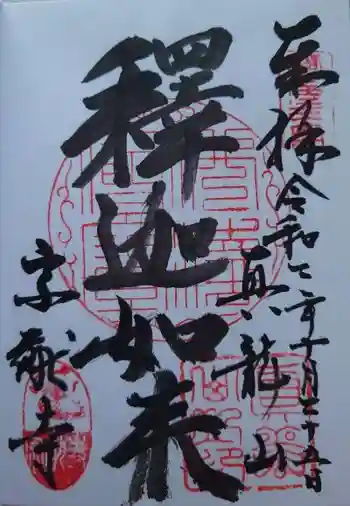 奉拝
令和三年十月二十五日
真龍山
釋迦如来
宗猷寺